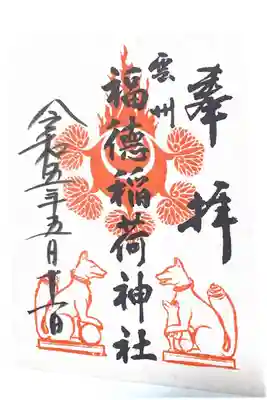 奉拝
雲州
福德稲荷神社
令和五年五月十一日